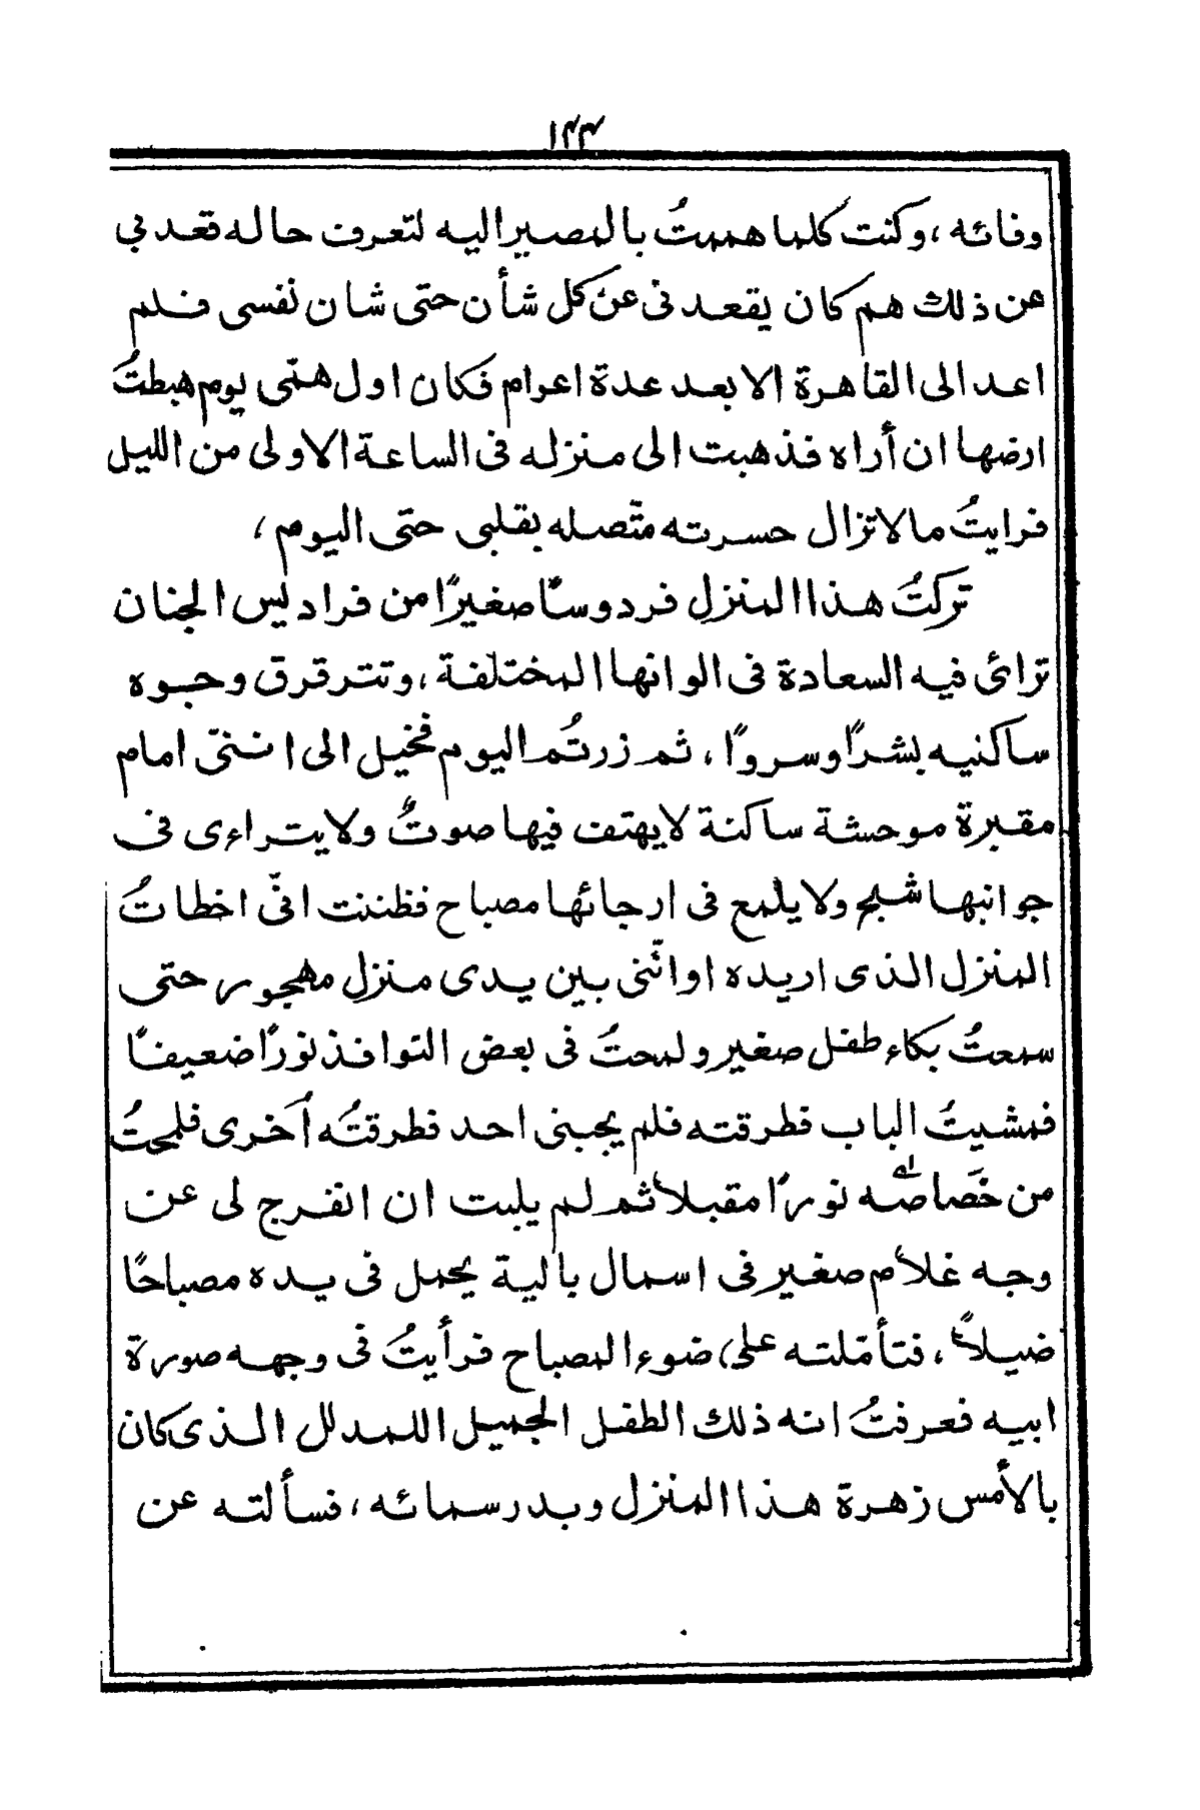 ١٢٣
وفائه ، وكنت كلما هممتُ بالمصير اليه لتعرف حاله قعد بي
عن ذلك هم كان يقعد نى عن كل شأن حتى شان نفسى فلم
اعد الى القاهرة الا بعد عدة اعوام فكان اول همّى يوم هبطتُ
ارضها ان أراه فذهبت الى منزله فى الساعة الاولى من الليل
فرايتُ ما لا تزال حسرته متّصله بقلبى حتى اليوم ،
تركتُ هذا المنزل فردوسًا صغيرًا من فراديس الجنان
ترائ فيه السعادة فى الوانها المختلفة ، وتترقرق وجوه
ساكنيه بشرًا وسروًا ، ثم زرتُم اليوم فخيل الى اننىّ امام
مقبرة موحشة ساكنة لا يهتف فيها صوتٌ ولا يتراءى فى
جوانبها شبح ولا يلمع فى ارجائها مصباح فظننت انىّ اخطاتُ
المنزل الذى اريده او انّنى بين يدى منزل مهجور حتى
سمعتُ بكاء طفل صغير ولمحتُ فى بعض النوافذ نورًا ضعيفًا
فمشيتُ الباب فطرقته فلم يجبنى احد فطرقتُه أخرى فلمحتُ
من خَصاصه نورًا مقبلاً ثم لم يلبت ان انفرج لى عن
وجه غلام صغير فى اسمال بالية يحمل فى يده مصباحًا
ضيلاً ، فتأمّلته على ضوء المصباح فرأيتُ فى وجهه صورة
ابيه فعرفتُ انه ذلك الطفل الجميل اللمدلل الذى كان
بالأمس زهرة هذا المنزل وبدر سمائه ، فسألته عن